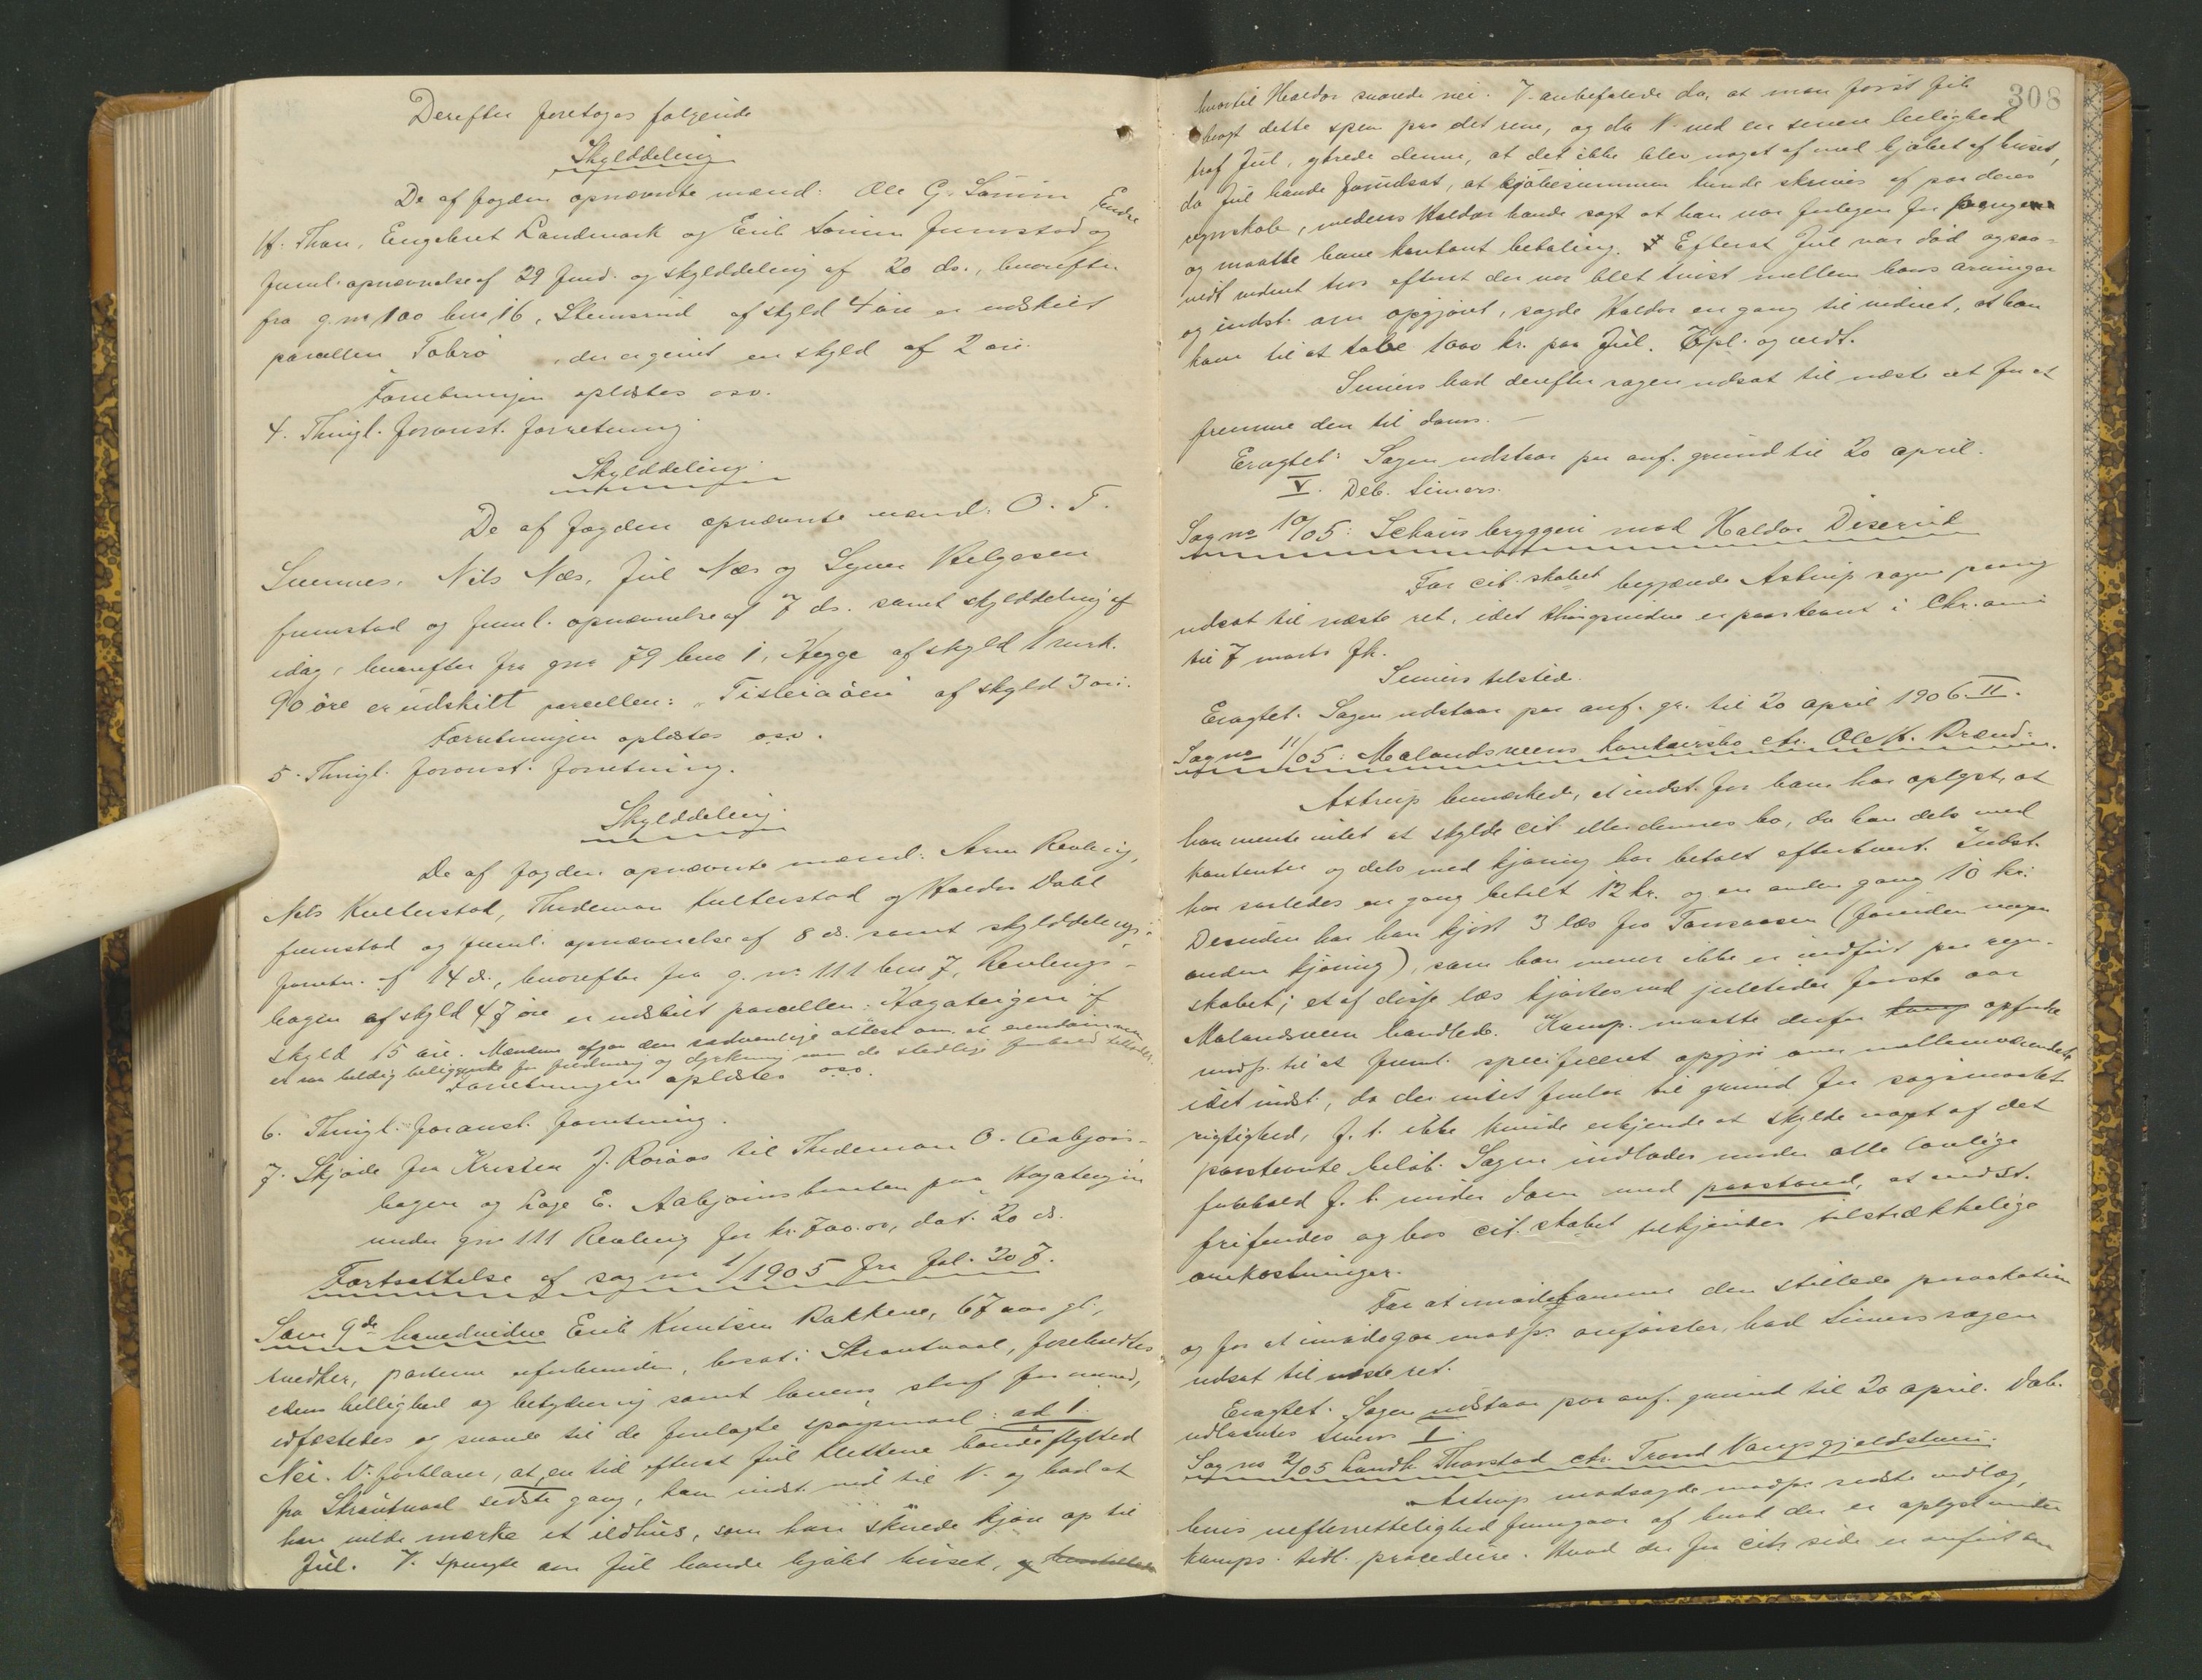 Derefter foretoges følgende
Skylddeling
De af fogden opnævnte mænd: Ole G. Lømin Endre
H. Thon, Engebret Landmark og Erik Lømin fremstod og
freml. opnævnelse af 29 f.md. og skylddeling af 20 ds., hvorefter
fra g.nr 100 brn 16, Stensrud af skyld 4 øre er udskilt
parcellen Tobro, der er givet en skyld af 2 øre.
Forretningen oplæstes osv.
4. Thingl. foranst. forretning.
Skylddeling.
De af fogden opnævnte mænd: O. T.
Nils Næs, Jul Næs og Syver Helgesen
fremstod og freml. opnævnelse af 7 ds. samt skylddeling af
idag, hvorefter fra gnr 79 brn 1, Hegge af skyld 1 mrk.
90 øre er udskilt parcellen: "Tisleiaöen" af skyld 3 øre.
Forretningen oplæstes osv.
5. Thingl. foranst. forretning.
Skylddeling.
De af fogden opnævnte mænd: Arne Revling,
Nils Kulterstad, Thideman Kulterstad og Haldor Dahl
fremstod og freml. opnævnelse af 8 ds. samt skylddelings-
forretn. af 14 ds., hvorefter fra g. nr. 111 brn 7, Revlings-
hagen af skyld 47 øre er udskilt parcellen: Hagateigen af
skyld 15 øre. Mændene afgav den sædvanlige attest om at eiendommen
er saa heldig beliggende for fredning og dyrkning som de stedlige forhold tillader.
Forretningen oplæstes osv.
6. Thingl. foranst. forretning.
7. Skjøde fra Kristen J. Roraas til Thideman O. Aabjørs-
hagen og Lage E. Aabjørsbraaten paa Hagateigen
under gnr 111 Revling for kr. 700.00, dat. 20 ds.
Fortsættelse af sag nr 1/1905 fra fol. 307.
Som 9de hovedvidne Erik Knutsen Bakkene, 67 aar gl.,
snedker, parterne uforbunden, bosat i Skrautvaal, foreholdtes
edens hellighed og betydning samt lovens straf for mened,
edfæstedes og svarede til de fremlagte spørgsmaal: ad 1.
Nei. V. forklarer, at en tid efterat Jul Klettene havde flyttet
fra Skrautvaal sidste gang, kom indst. ned til V. og bad at
han vilde mærke et ildhus, som han skulde kjøre op til
Jul. V. spurgte om Jul havde kjøbt huset, og
308
hvortil Haldor svarede nei. V. anbefalede da, at man først fik
bragt dette spm paa det rene, og da V. ved en senere leilighed
traf Jul, ytrede denne, at det ikke blev noget af med kjøbet af huset,
da Jul havde forudsat, at kjøbesummen kunde skrives af paa deres
regnskab, medens Haldor havde sagt at han var forlegen for penge
og maatte have kontant betaling. Efterat Jul var død ogsaa
vidt vidnet tror efterat der var blet tvist mellem hans arvinger
og indst. om opgjøret, sagde Haldor en gang til vidnet, at han
kom til at tabe 1000 kr. paa Jul. Opl. og vedt.
Simers bad derefter sagen udsat til næste ret for at
fremme den til dom. —
Eragtet: Sagen udstaar paa anf. grund til 20 april.
V. Deb. Simers.
Sag nr 10/05: Schous bryggeri mod Haldor Diserud
For cit.skabet begjærede Astrup sagen paany
udsat til næste ret, idet thingsvidne er paastevnt i Chr.ania
til 7 marts fk.
Simers tilstede.
Eragtet: Sagen udstaar paa anf. gr. til 20 april 1906. II.
Sag no 11/05: Molandsveens konkursbo ctr. Ole H. Brænd-
Astrup bemærkede, at indst. for ham har oplyst, at
han mente intet at skylde cit. eller dennes bo, da han dels med
kontanter og dels med kjøring har betalt efterhvert. Indst.
har saaledes en gang betalt 12 kr. og en anden gang 10 kr.
Desuden har han kjørt 3 læs fra Tonsaasen (foruden nogen
anden kjøring), som han mener ikke er indført paa regn-
skabet; et af disse læs kjørtes ved juletider første aar
Molandsveen handlede. Komp. maatte derfor opfordre
modp. til at freml. specificeret opgjør over mellemværendet
idet indst., da der intet forelaa til grund for sagsmaalet
rigtighed, f. t. ikke kunde erkjende at skylde noget af det
paastevnte beløb. Sagen indlades under alle lovlige
forbehold f. t. under dom med paastand, at indst.
frifindes og hos cit.skabet tilkjendes tilstrækkelige
omkostninger.
For at imødekomme den stillede provokation
og for at imødegaa modp.s anførsler, bad Simers sagen
udsat til næste ret.
Eragtet: Sagen udstaar paa anf. grund til 20 april. Dok.
udlaantes Simers I.
Sag no 2/05 Landh. Thorstad ctr. Trond Vangsgjeldstuen.
Astrup modsagde modp.s sidste indlæg,
hvis uefterrettelighed fremgaar af hvad der er oplyst under
komps. tidl. procedure. Hvad der fra cit.s side er anført om